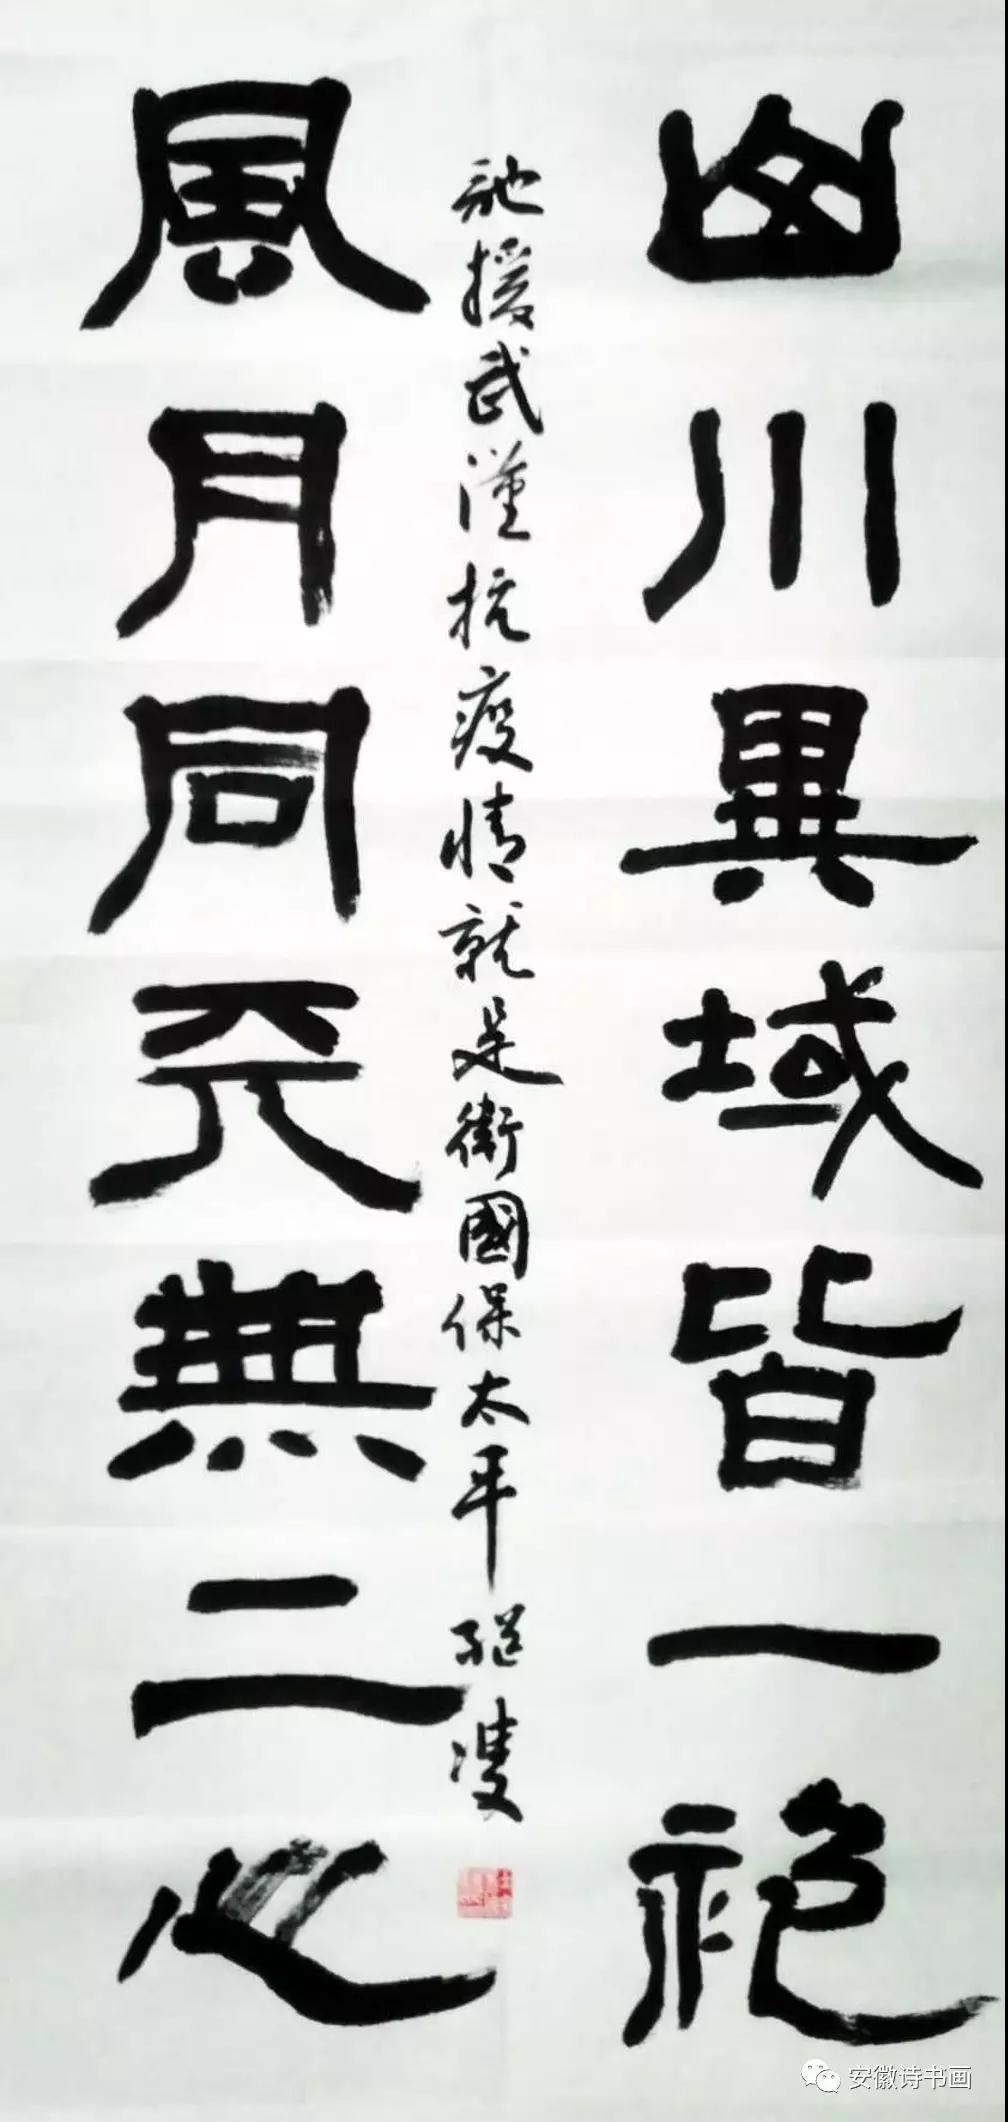 山川異域皆一
馳援武漢抗疫情就是衛國保太平
風月同天無二心
安徽诗书画